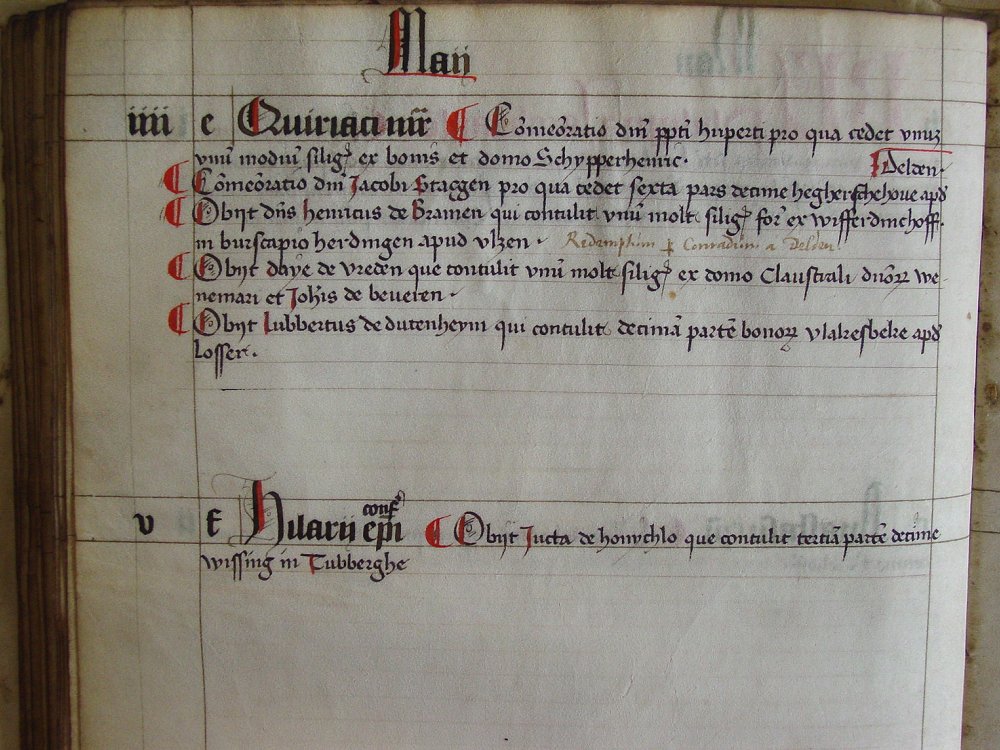 Maij
iiii e Quiriaci mr̄r ¶ Cōmeōratio dn̄i ppt̄i huperti pro qua cedet vnuz
vnū modiū siliḡ ex bonis et domo Schypperhenric.
Delden.
¶ Cōmeōratio dn̄i Jacobi Stacgen pro qua cedet sexta pars decime hegherschehoue apd̄
¶ Obijt dn̄s henricus de Bramen qui contulit vnū molt siliḡ for̄ ex wifferdinchoff.
in burscapio herdingen apud vlzen. Redemptum p̱ Conradum a Delden
¶ Obijt daye de vreden que contulit vnū molt siliḡ ex domo Claustrali dn̄orꝝ we-
nemari et Joh̄is de beueren.
¶ Obijt Lubbertus de dutenheym qui contulit decimā partē bonorꝝ vlakesbeke apd̄
Losser.
v f Hilarii ep̄i conf̄ ¶ Obijt Jutta de honychlo que contulit tertiā partē decime
wissing in Tubberghe